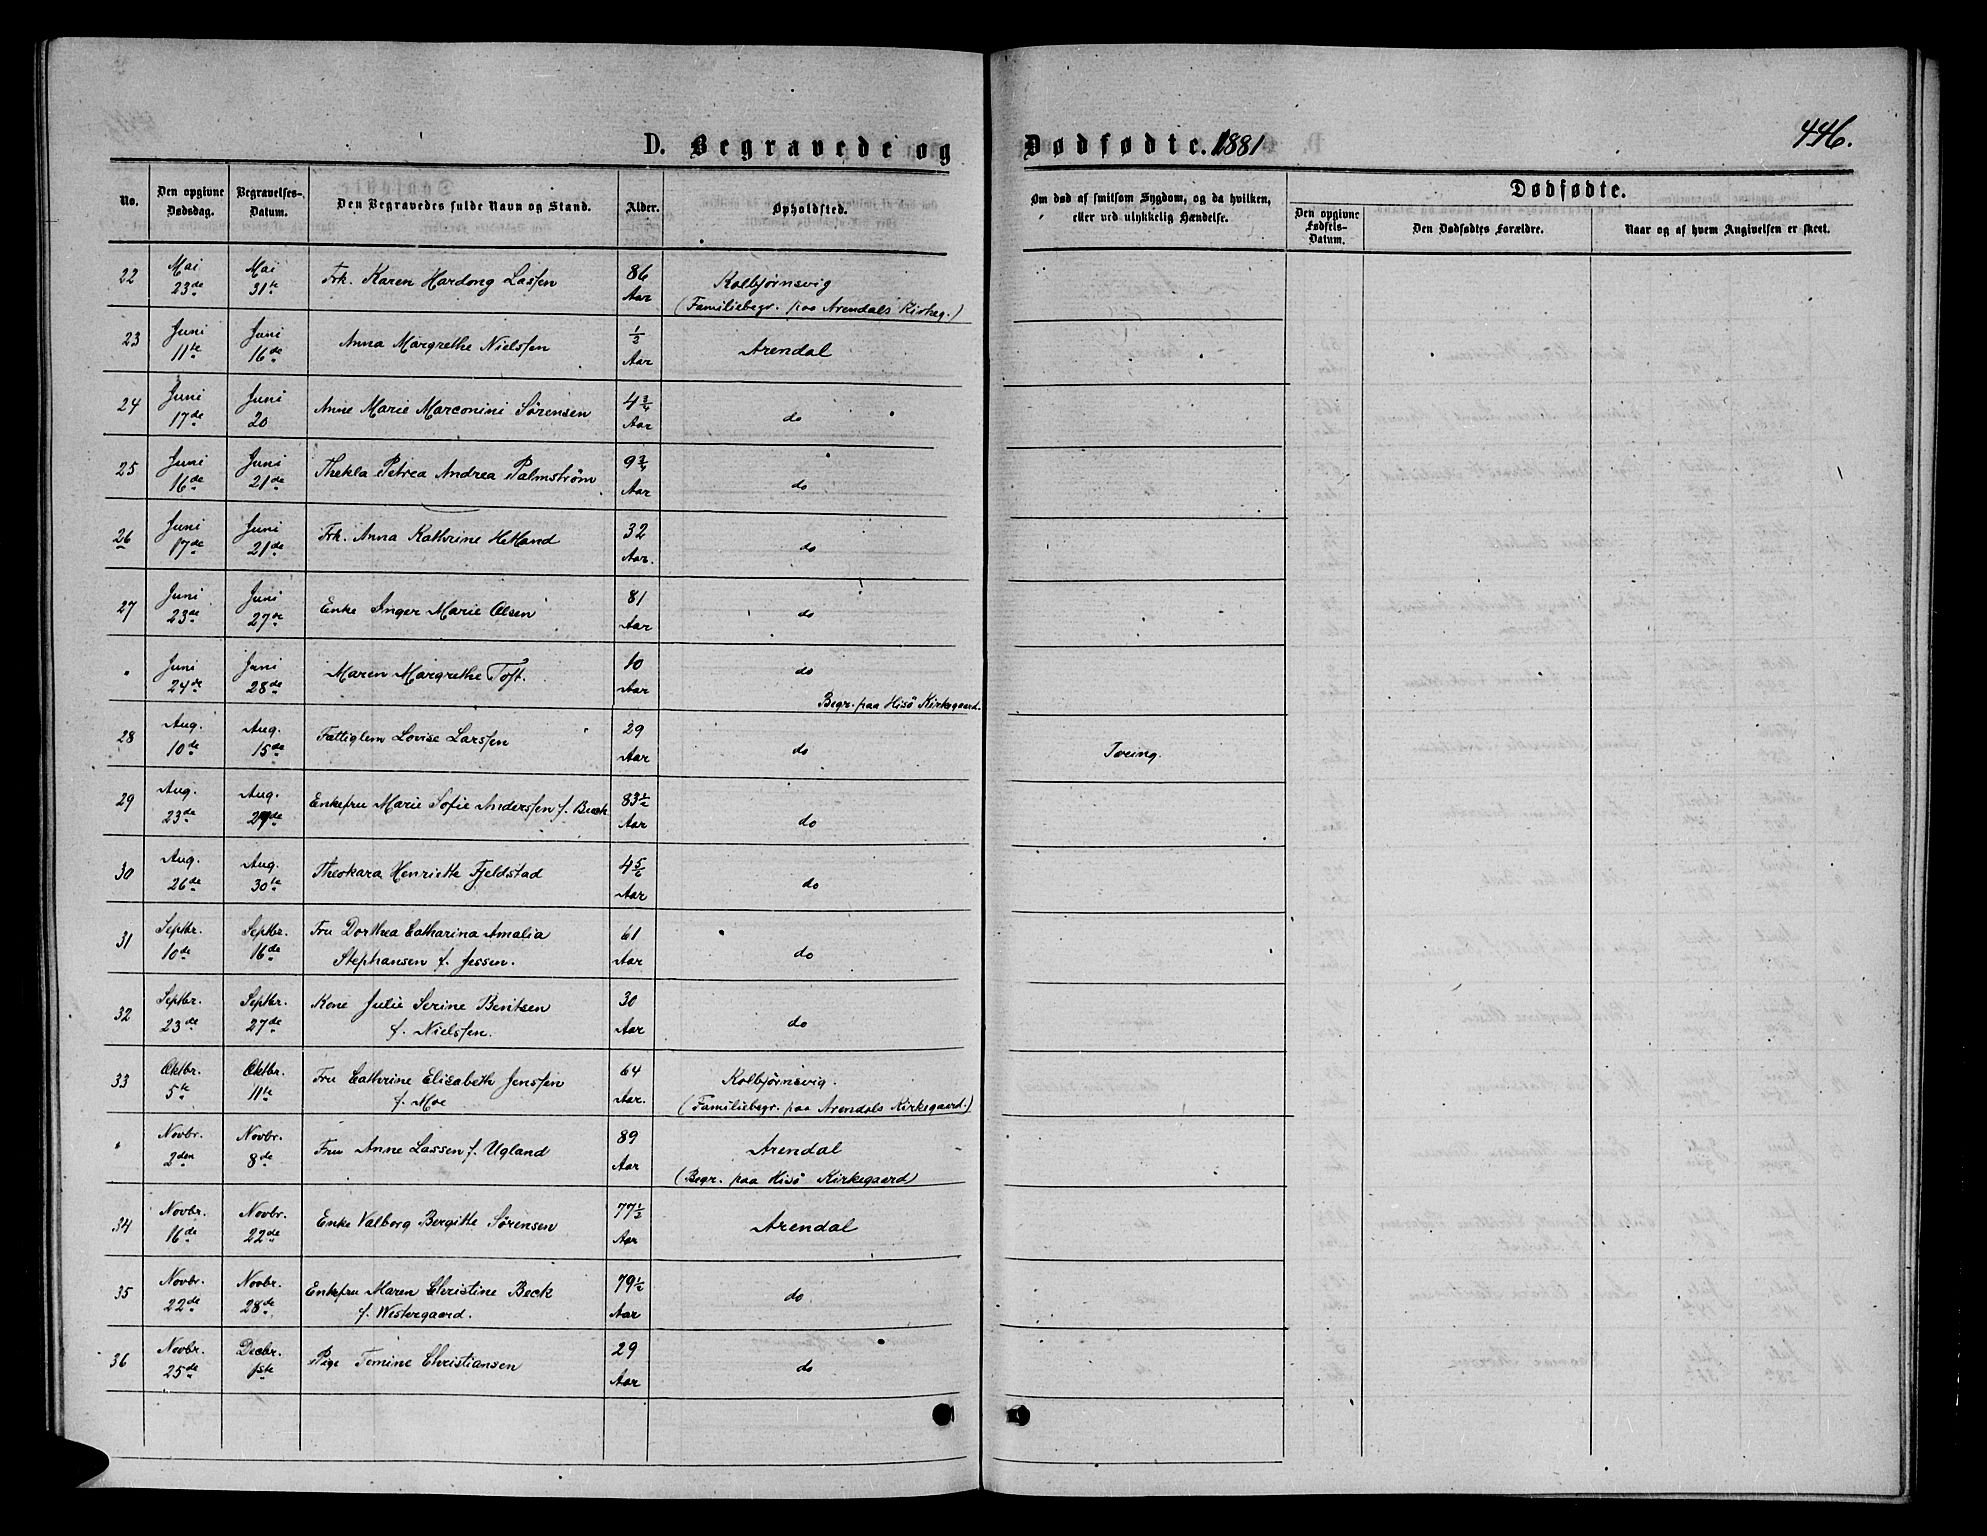 446.
D. Begravede og Dødfødte. 1881
No.
Den opgivne Dødsdag.
Begravelses-Datum.
Den Begravedes fulde Navn og Stand.
Alder.
Opholdsted.
Om død af smitsom Sygdom, og da hvilken, eller ved ulykkelig Hændelse.
Dødfødte.
Den opgivne Fødsels-Datum.
Den Dødfødtes Forældre.
Naar og af hvem Angivelsen er skeet.
22 Mai 23de Mai 31te Frk. Karen Hardong Lassen 86 Aar Kolbjørnsvig
(Familiebegr. paa Arendals Kirkeg.)
23 Juni 11te Juni 16de Anna Margrethe Nielssen 1/2 Aar Arendal
24 Juni 17de Juni 20 Anne Marie Marconini Sørensen 4 3/4 Aar do
25 Juni 16de Juni 21de Thekla Petrea Andrea Palmstrøm 9 3/4 Aar do
26 Juni 17de Juni 21de Frk. Anna Kathrine Hetland 32 Aar. do
27 Juni 23de Juni 27de Enke Inger Marie Olsen 81 Aar do
" Juni 24de Juni 28de Maren Margrethe Toft. 10 Aar do
Begr. paa Hisø Kirkegaard.
28 Aug. 10de Aug. 15de Fattiglem Lovise Larssen 29 Aar do Tæring.
29 Aug. 23de Aug. 29de Enkefru Marie Sofie Anderssen f. Beck 83 1/2 Aar do
30 Aug. 26de Aug. 30te Theokara Henriette Fjeldstad 4 5/6 Aar do
31 Septbr. 10de Septbr. 16de Fru Dorthea Catharina Amalia
Stephansen f. Jessen. 61 Aar do
32 Septbr. 23de Septbr. 27de Kone Julie Serine Bentsen
f. Nielssen. 30 Aar do
33 Oktbr. 5te Oktbr. 11te Fru Cathrine Elisabeth Jenssen
f. Moe 64 Aar. Kolbjørnsvig.
(Familiebegr. paa Arendals Kirkegaard.)
" Novbr. 2den Novbr. 8de Fru Anne Lassen f. Ugland 89 Aar Arendal
(Begr. paa Hisø Kirkegaard)
34 Novbr. 16de Novbr. 22de Enke Valborg Bergitte Sørensen 77 1/2 Aar Arendal
35 Novbr. 22de Novbr. 28de Enkefru Maren Christine Beck
f. Westergaard. 79 1/2 Aar do
36 Novbr. 25de Decbr. 1ste Pige Tomine Christiansen 29 Aar do